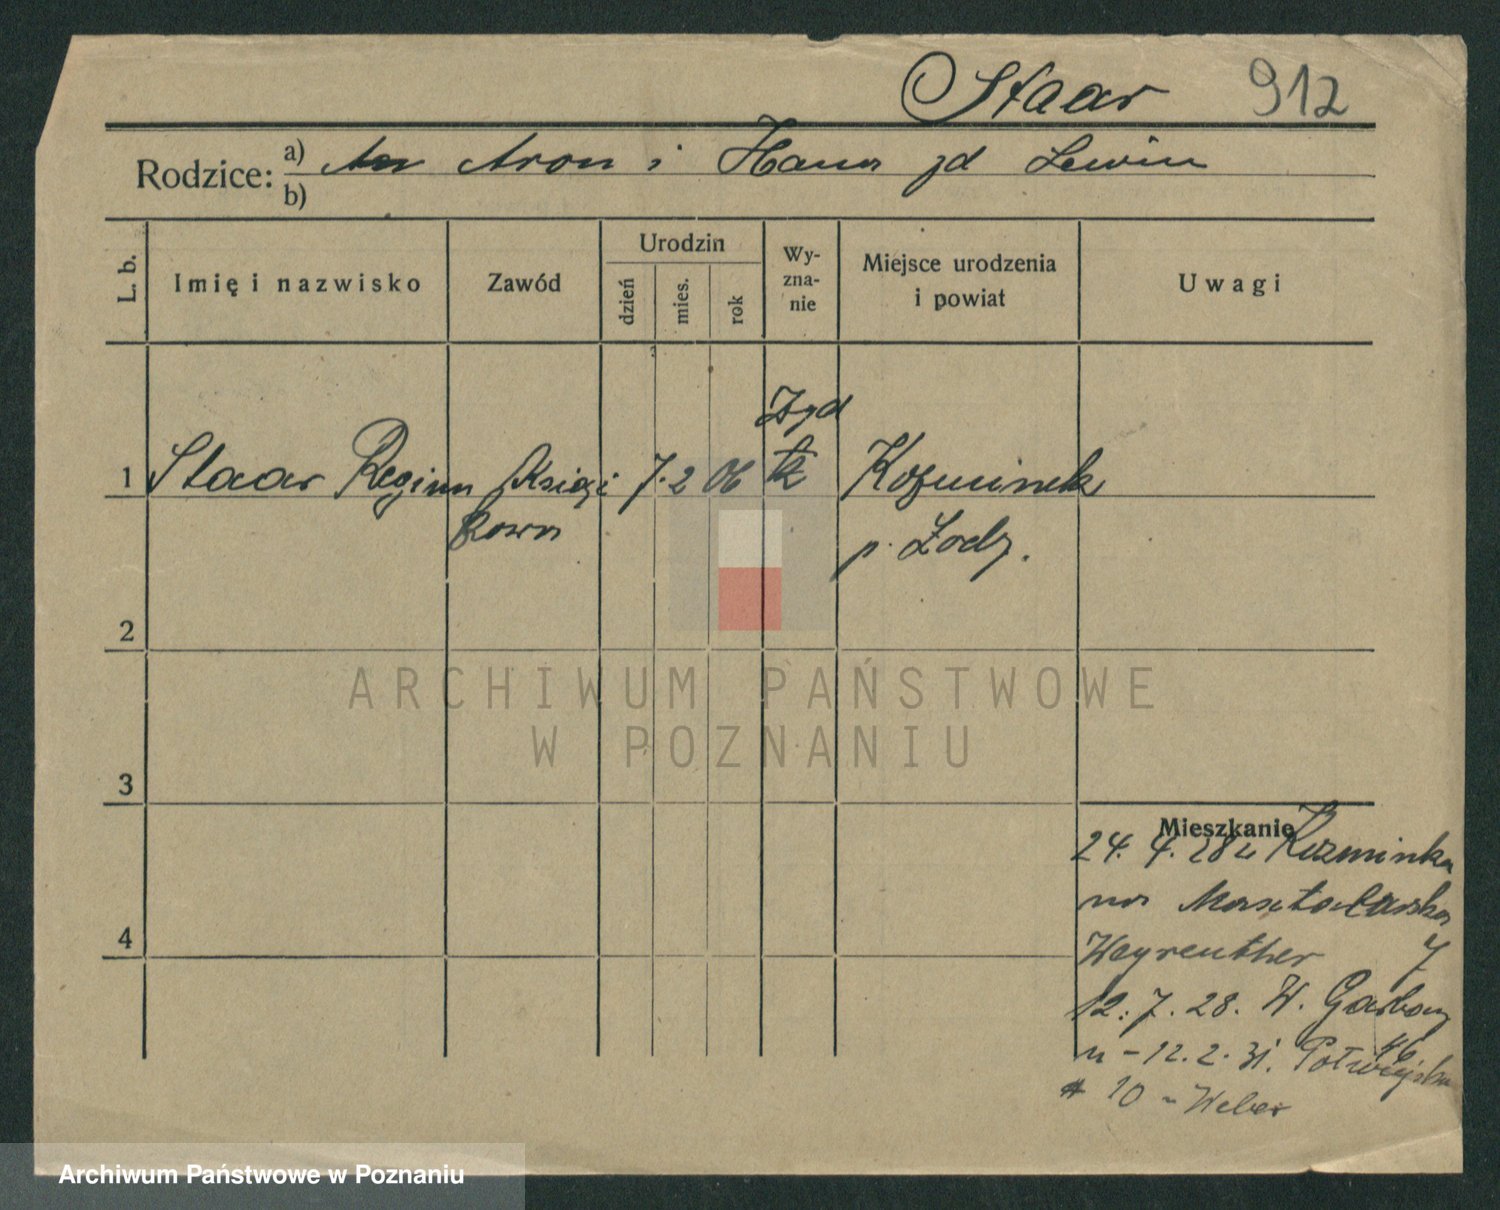 Staar 912
Rodzice: a) Aron i Hana zd Lewin
b)
L. b. Imię i nazwisko Zawód Urodzin dzień mies. rok Wy-zna-nie Miejsce urodzenia i powiat Uwagi
Żyd
1 Staar Regina Księg 7. 2 06 tz Koźminek
kowa p. Łodz.
2
3
4
Mieszkanie
24. 4. 28 z Kozminka
na Masztalarska
Weyreuther 7
12. 7. 28. W. Garbary
46
n - 12. 2. 31. Półwiejska
# 10 - Weber
ARCHIWUM PAŃSTWOWE
W POZNANIU
Archiwum Państwowe w Poznaniu